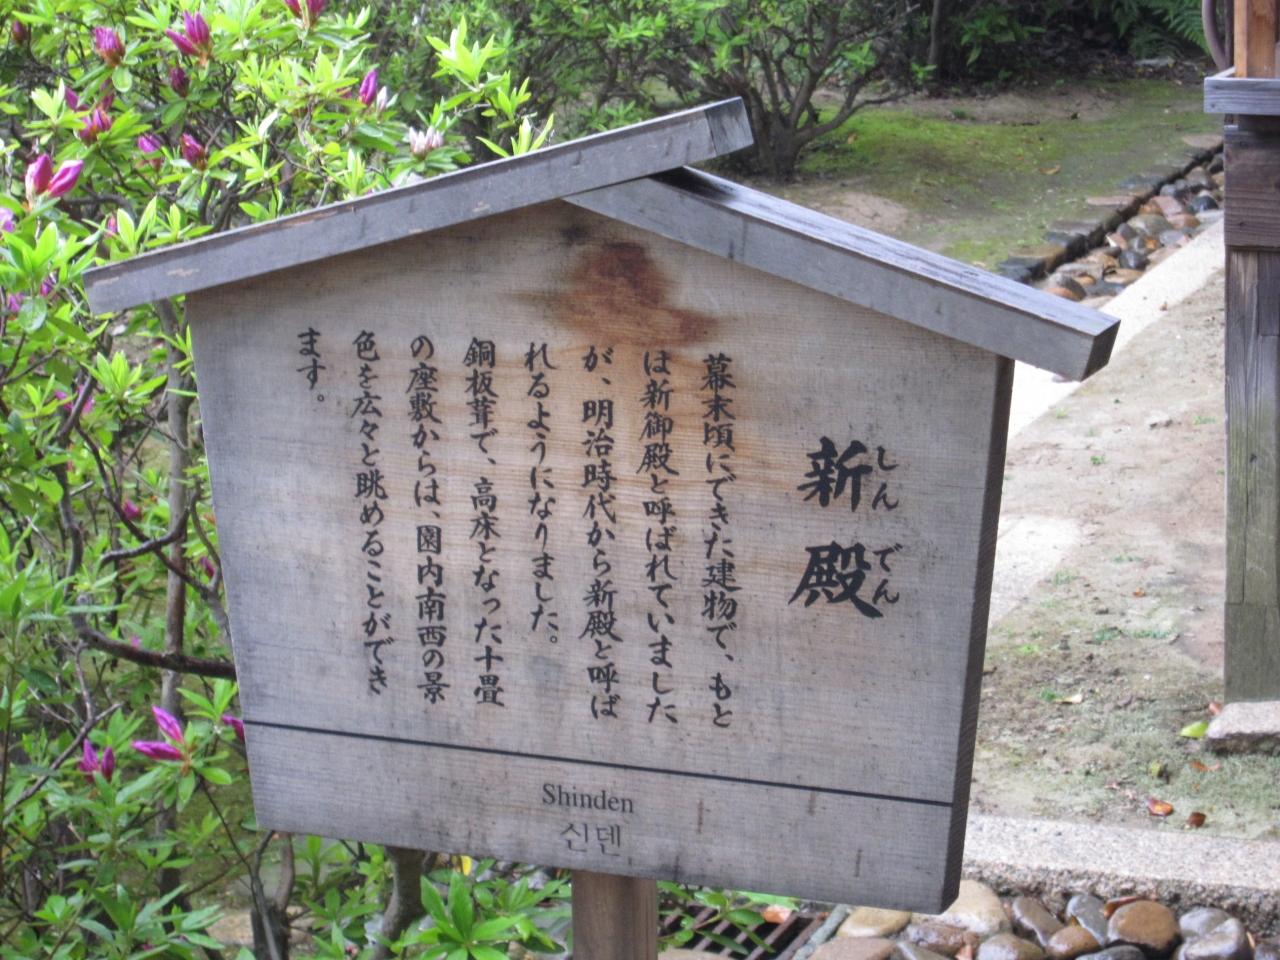 新殿
しんでん
幕末頃にできた建物で、もと
は新御殿と呼ばれていました
が、明治時代から新殿と呼ば
れるようになりました。
銅板葺で、高床となった十畳
の座敷からは、園内南西の景
色を広々と眺めることができ
ます。
Shinden
신덴